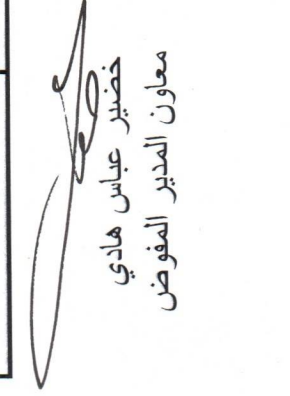 خضير عباس هادي
معاون المدير المفوض